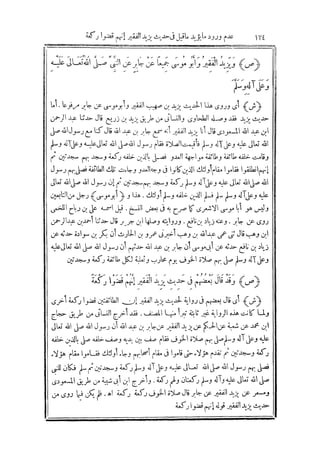 ١٢٤ عدم ورود ما يؤيد ما قيل فى حديث يزيد الفقير إنهم قضوا ركعة
(ص) وَيَزِيدُ الْفَقِيرُ وَأَبُو مُوسَى جَمِيعًا عَنْ جَابِرٍ عَنِ النَّبِىِّ صَلَّى اللهُ تَعَالَى عَلَيْهِ
وَعَلَى آلِهِ وَسَلَّمَ
(ش) أى وروى هذا الحديث يزيد بن صهيب الفقير وأبوموسى عن جابر مرفوعا. أما
حديث يزيد فقد وصله الطحاوى والنسائى من طريق يزيد بن زريع قال حدثنا عبد الرحمن
ابن عبد الله المسعودى قال أنا يزيد الفقير أنه سمع جابر بن عبد الله قال كنا مع رسول الله صلى
الله تعالى عليه وعلى آله وسلم فأقيمت الصلاة فقام رسول الله صلى الله تعالى عليه وعلى آله وسلم
وقامت خلفه طائفة وطائفة مواجهة العدو فصلى بالذين خلفه ركعة وسجد بهم سجدتين ثم
إنهم انطلقوا فقاموا مقام أولئك الذين كانوا فى وجه العدو وجاءت تلك الطائفة فصلى بهم رسول
الله صلى الله تعالى عليه وعلى آله وسلم ركعة وسجد بهم سجدتين ثم إن رسول الله صلى الله تعالى
عليه وعلى آله وسلم سلم فسلم الذين خلفه وسلم أولئك. هذا و(أبوموسى) رجل من التابعين
وليس هو أبا موسى الأشعرى كما صرح به فى بعض النسخ. قيل اسمه على بن رباح اللخمى
روى عن جابر. وعنه زياد بن نافع. وروايته وصلها ابن جرير قال حدثنا أحمد بن عبد الرحمن
ابن وهب قال ثنى عمى عبدالله بن وهب أخبرنى عمرو بن الحارث أن بكر بن سوادة حدثه عن
زياد بن نافع حدثه عن أبى موسى أن جابر بن عبد الله حدثهم أن رسول الله صلى الله تعالى عليه
وعلى آله وسلم صلى بهم صلاة الخوف يوم محارب وثعلبة لكل طائفة ركعة وسجدتين
(ص) وَقَدْ قَالَ بَعْضُهُمْ فِى حَدِيثِ يَزِيدَ الْفَقِيرِ إِنَّهُمْ قَضَوْا رَكْعَةً
(ش) أى قال بعضهم فى رواية لحديث يزيد الفقير إن الطائفتين قضوا ركعة أخرى
ولما كانت هذه الرواية غير ثابتة تبرأ منها المصنف. فقد أخرج النسائى من طريق حجاج
ابن محمد عن شعبة عن الحكم عن يزيد الفقير عن جابر بن عبد الله أن رسول الله صلى الله تعالى
عليه وعلى آله وسلم صلى بهم صلاة الخوف فقام صف بين يديه وصف خلفه صلى بالذين خلفه
ركعة وسجدتين ثم تقدم هؤلاء حتى قاموا فى مقام أصحابهم وجاء أولئك فقاموا مقام هؤلاء
فصلى بهم رسول الله صلى الله تعالى عليه وعلى آله وسلم ركعة وسجدتين ثم سلم فكان للنبى
صلى الله تعالى عليه وعلى آله وسلم ركعتان ولهم ركعة. وأخرج ابن أبى شيبة من طريق المسعودى
ومسعر عن يزيد الفقير عن جابر قال صلاة الخوف ركعة ركعة اه. فلم يكن فيما روى من
حديث يزيد الفقير قوله إنهم قضوا ركعة